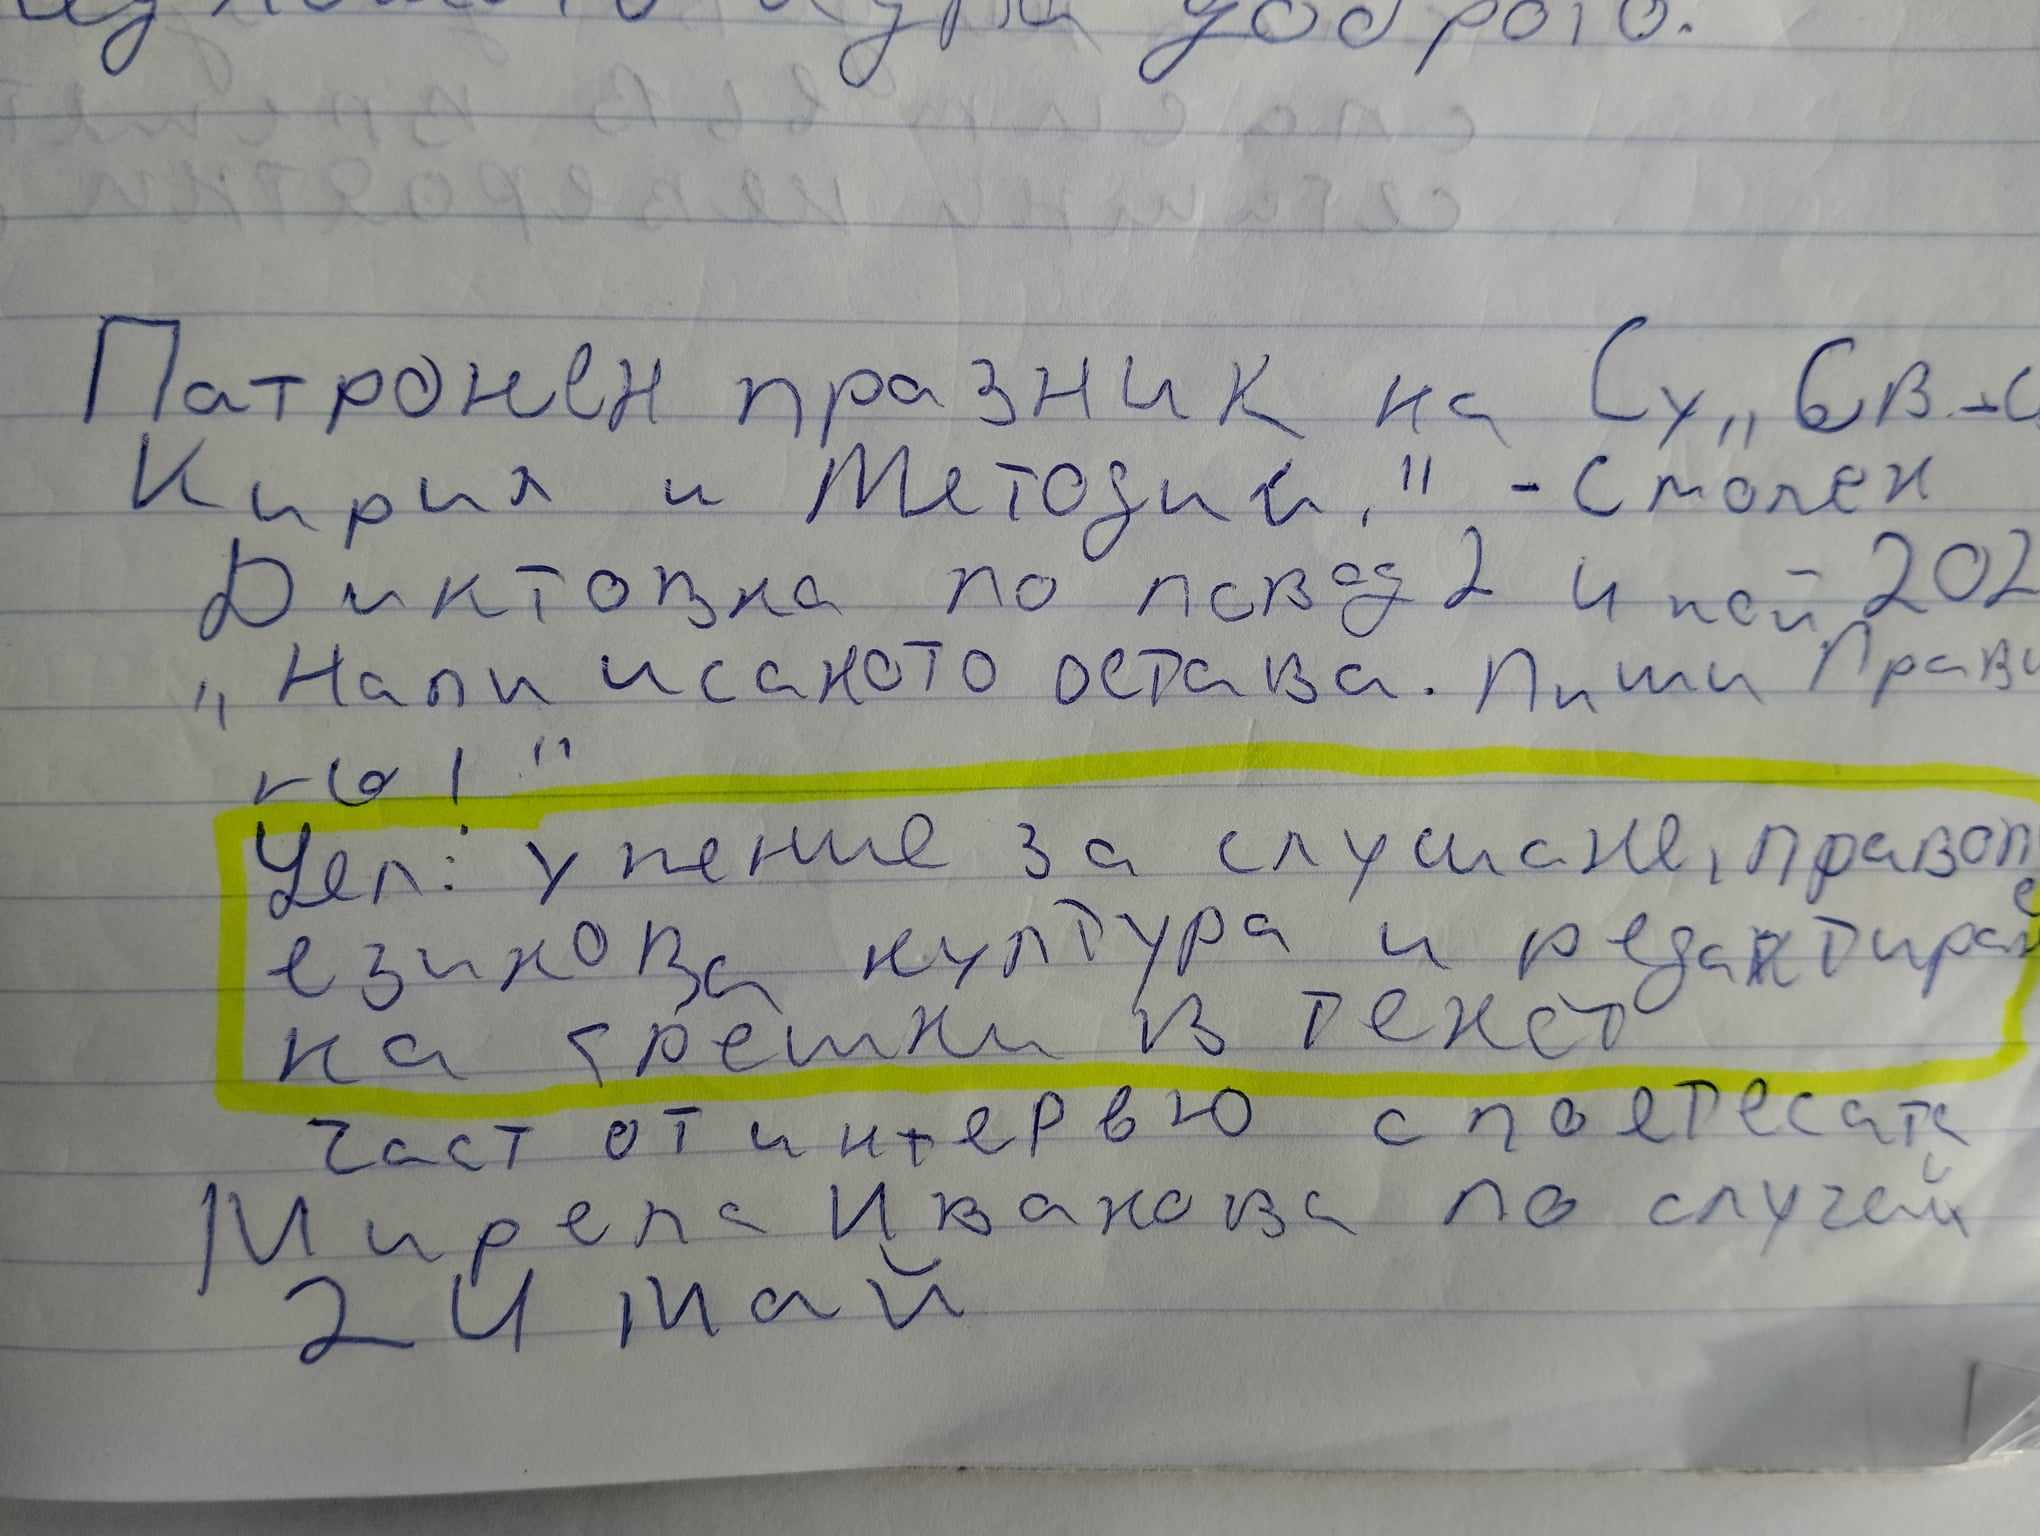 доброто.
Патронен празник на Су „Св-
Кирил и Методий," - Смолен
Диктовка по повод 24 май 202
„Напи исаното остава. Пиши Прави
но!"
Цел: умение за слушане, правоп
езикова култура и редактиран
на грешки в текст
част от интервю с поетесата
Мирела Иванова по случай
24 май